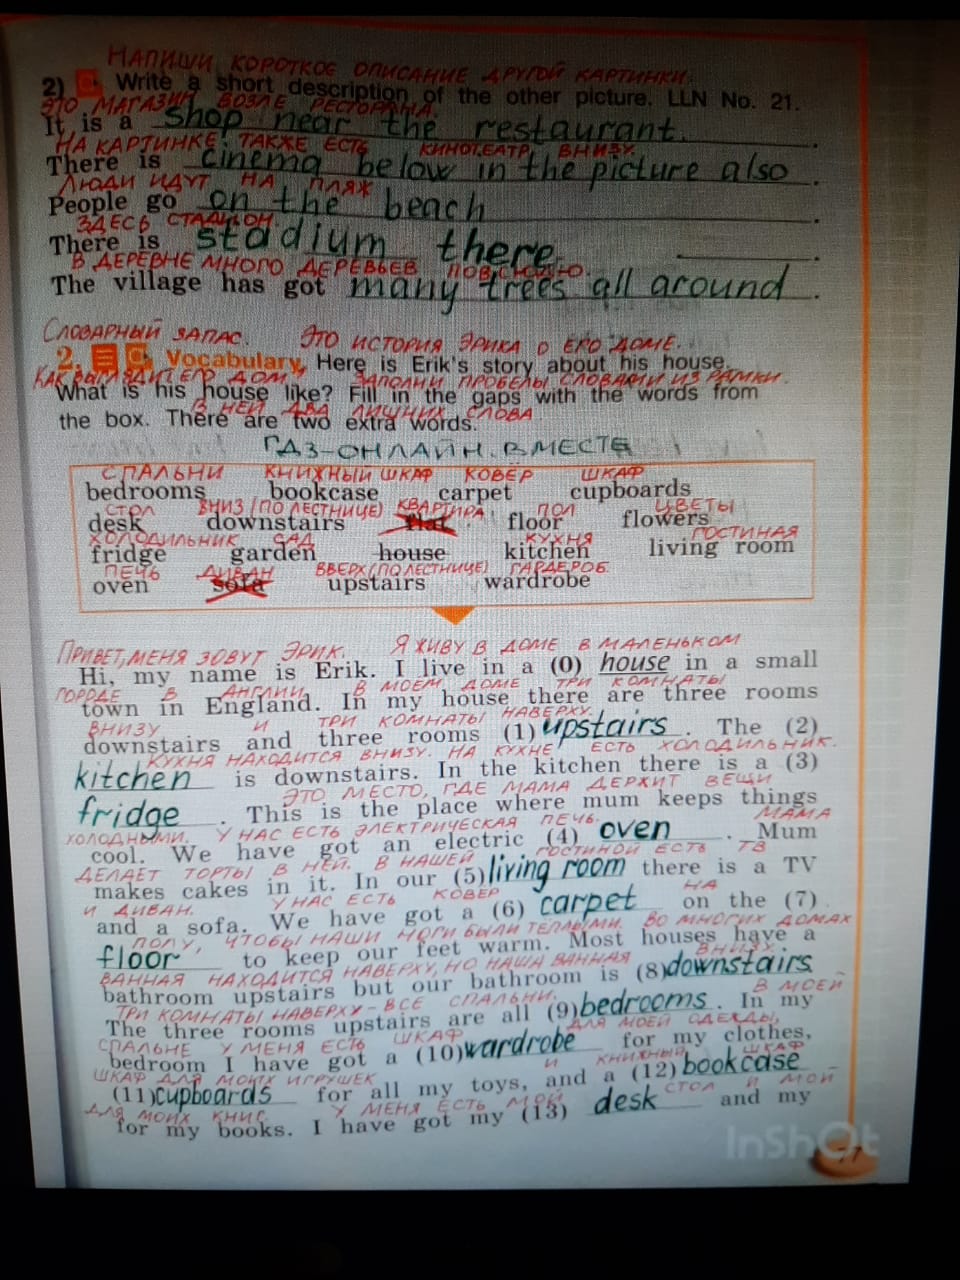 НАПИШИ КОРОТКОЕ ОПИСАНИЕ ДРУГОЙ КАРТИНКИ.
2) Write a short description of the other picture. LLN No. 21.
ЭТО МАГАЗИН ВОЗЛЕ РЕСТОРАНА.
It is a shop near the restaurant.
НА КАРТИНКЕ ТАКЖЕ ЕСТЬ КИНОТЕАТР ВНИЗУ.
There is cinema below in the picture also.
ЛЮДИ ИДУТ НА ПЛЯЖ
People go on the beach.
ЗДЕСЬ СТАДИОН.
There is stadium there.
В ДЕРЕВНЕ МНОГО ДЕРЕВЬЕВ ПОВСЮДУ.
The village has got many trees all around.
СЛОВАРНЫЙ ЗАПАС. ЭТО ИСТОРИЯ ЭРИКА О ЕГО ДОМЕ.
2. Vocabulary. Here is Erik's story about his house.
КАК ВЫГЛЯДИТ ЕГО ДОМ? ЗАПОЛНИ ПРОБЕЛЫ СЛОВАМИ ИЗ РАМКИ.
What is his house like? Fill in the gaps with the words from
В НЕЙ ДВА ЛИШНИХ СЛОВА
the box. There are two extra words.
ГДЗ-ОНЛАЙН.ВМЕСТЕ
СПАЛЬНИ КНИЖНЫЙ ШКАФ КОВЁР ШКАФ
bedrooms bookcase carpet cupboards
СТОЛ ВНИЗ (ПО ЛЕСТНИЦЕ) КВАРТИРА ПОЛ ЦВЕТЫ
desk downstairs flat floor flowers
ХОЛОДИЛЬНИК САД КУХНЯ ГОСТИНАЯ
fridge garden house kitchen living room
ПЕЧЬ ДИВАН ВВЕРХ (ПО ЛЕСТНИЦЕ) ГАРДЕРОБ
oven sofa upstairs wardrobe
ПРИВЕТ, МЕНЯ ЗОВУТ ЭРИК. Я ЖИВУ В ДОМЕ В МАЛЕНЬКОМ
Hi, my name is Erik. I live in a (0) house in a small
ГОРОДЕ В АНГЛИИ. В МОЕМ ДОМЕ ТРИ КОМНАТЫ
town in England. In my house there are three rooms
ВНИЗУ И ТРИ КОМНАТЫ НАВЕРХУ.
downstairs and three rooms (1) upstairs. The (2)
КУХНЯ НАХОДИТСЯ ВНИЗУ. НА КУХНЕ ЕСТЬ ХОЛОДИЛЬНИК.
kitchen is downstairs. In the kitchen there is a (3)
ЭТО МЕСТО, ГДЕ МАМА ДЕРЖИТ ВЕЩИ
fridge. This is the place where mum keeps things
ХОЛОДНЫМИ. У НАС ЕСТЬ ЭЛЕКТРИЧЕСКАЯ ПЕЧЬ. МАМА
cool. We have got an electric (4) oven. Mum
ДЕЛАЕТ ТОРТЫ В НЕЙ. В НАШЕЙ ГОСТИНОЙ ЕСТЬ ТВ
makes cakes in it. In our (5) living room there is a TV
И ДИВАН. У НАС ЕСТЬ КОВЕР НА
and a sofa. We have got a (6) carpet on the (7)
ПОЛУ, ЧТОБЫ НАШИ НОГИ БЫЛИ ТЕПЛЫМИ. ВО МНОГИХ ДОМАХ
floor to keep our feet warm. Most houses have a
ВАННАЯ НАХОДИТСЯ НАВЕРХУ, НО НАША ВАННАЯ ВНИЗУ.
bathroom upstairs but our bathroom is (8) downstairs.
ТРИ КОМНАТЫ НАВЕРХУ - ВСЕ СПАЛЬНИ. В МОЕЙ
The three rooms upstairs are all (9) bedrooms. In my
СПАЛЬНЕ У МЕНЯ ЕСТЬ ШКАФ ДЛЯ МОЕЙ ОДЕЖДЫ,
bedroom I have got a (10) wardrobe for my clothes,
ШКАФ ДЛЯ МОИХ ИГРУШЕК И КНИЖНЫЙ ШКАФ
(11) cupboards for all my toys, and a (12) bookcase
ДЛЯ МОИХ КНИГ. У МЕНЯ ЕСТЬ МОЙ СТОЛ И МОЙ
for my books. I have got my (13) desk and my
InShOt